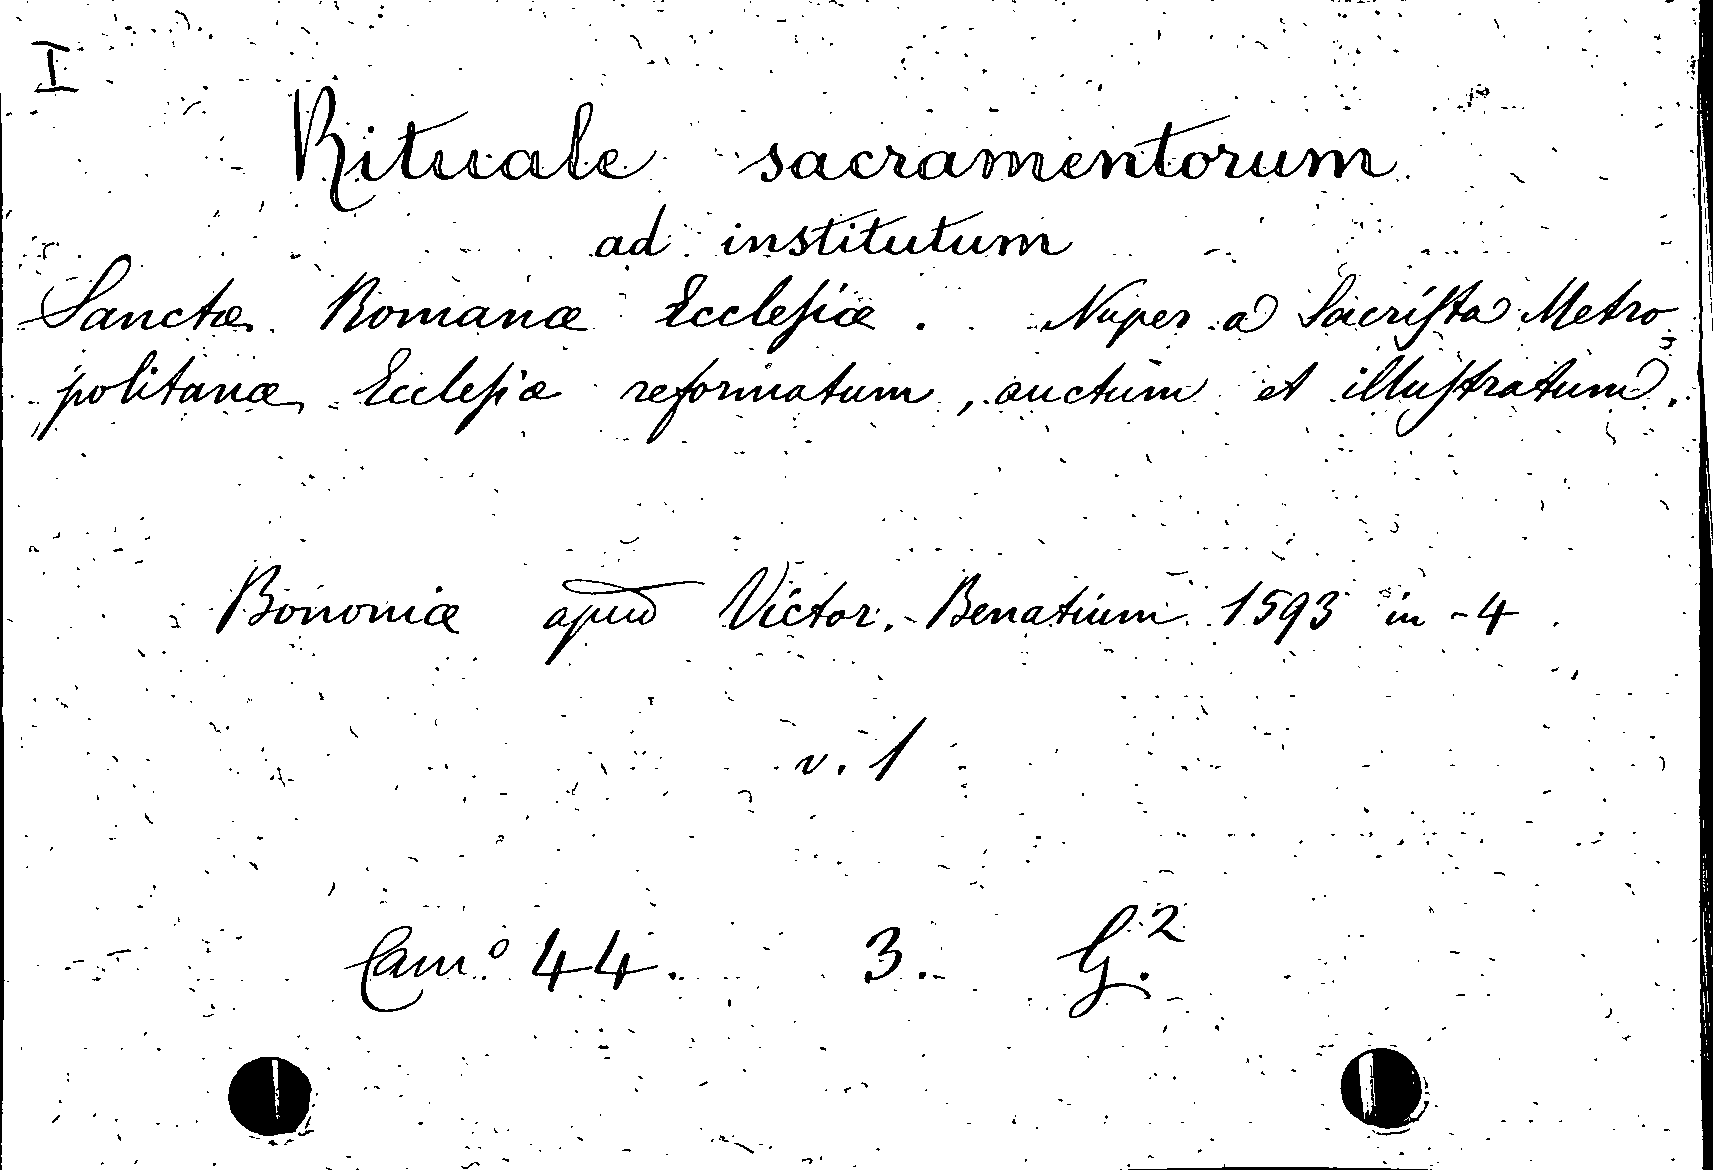 I
Rituale sacramentorum
ad institutum
Sanctæ Romanæ Ecclesiæ. Nuper a Sacrista Metro
politanæ Ecclesiæ reformatum, auctum et illustratum.
Bononiæ apud Victor. Benatium 1593 in-4
v. 1
Cam.º 44. 3. G.²